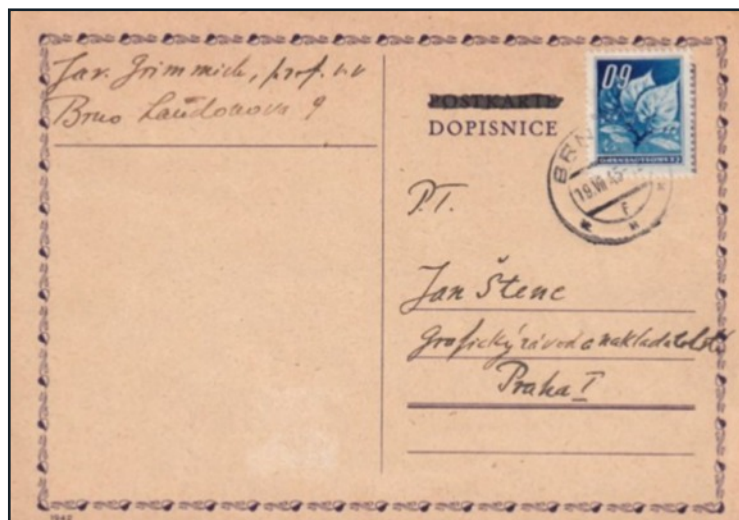 Jar. Grimmich, prof. v.v
Brno Laudonova 9
POSTKARTE
DOPISNICE
60
BRN
19.VII.45
P.T.
Jan Štenc
Grafický závod a nakladatelství
Praha I